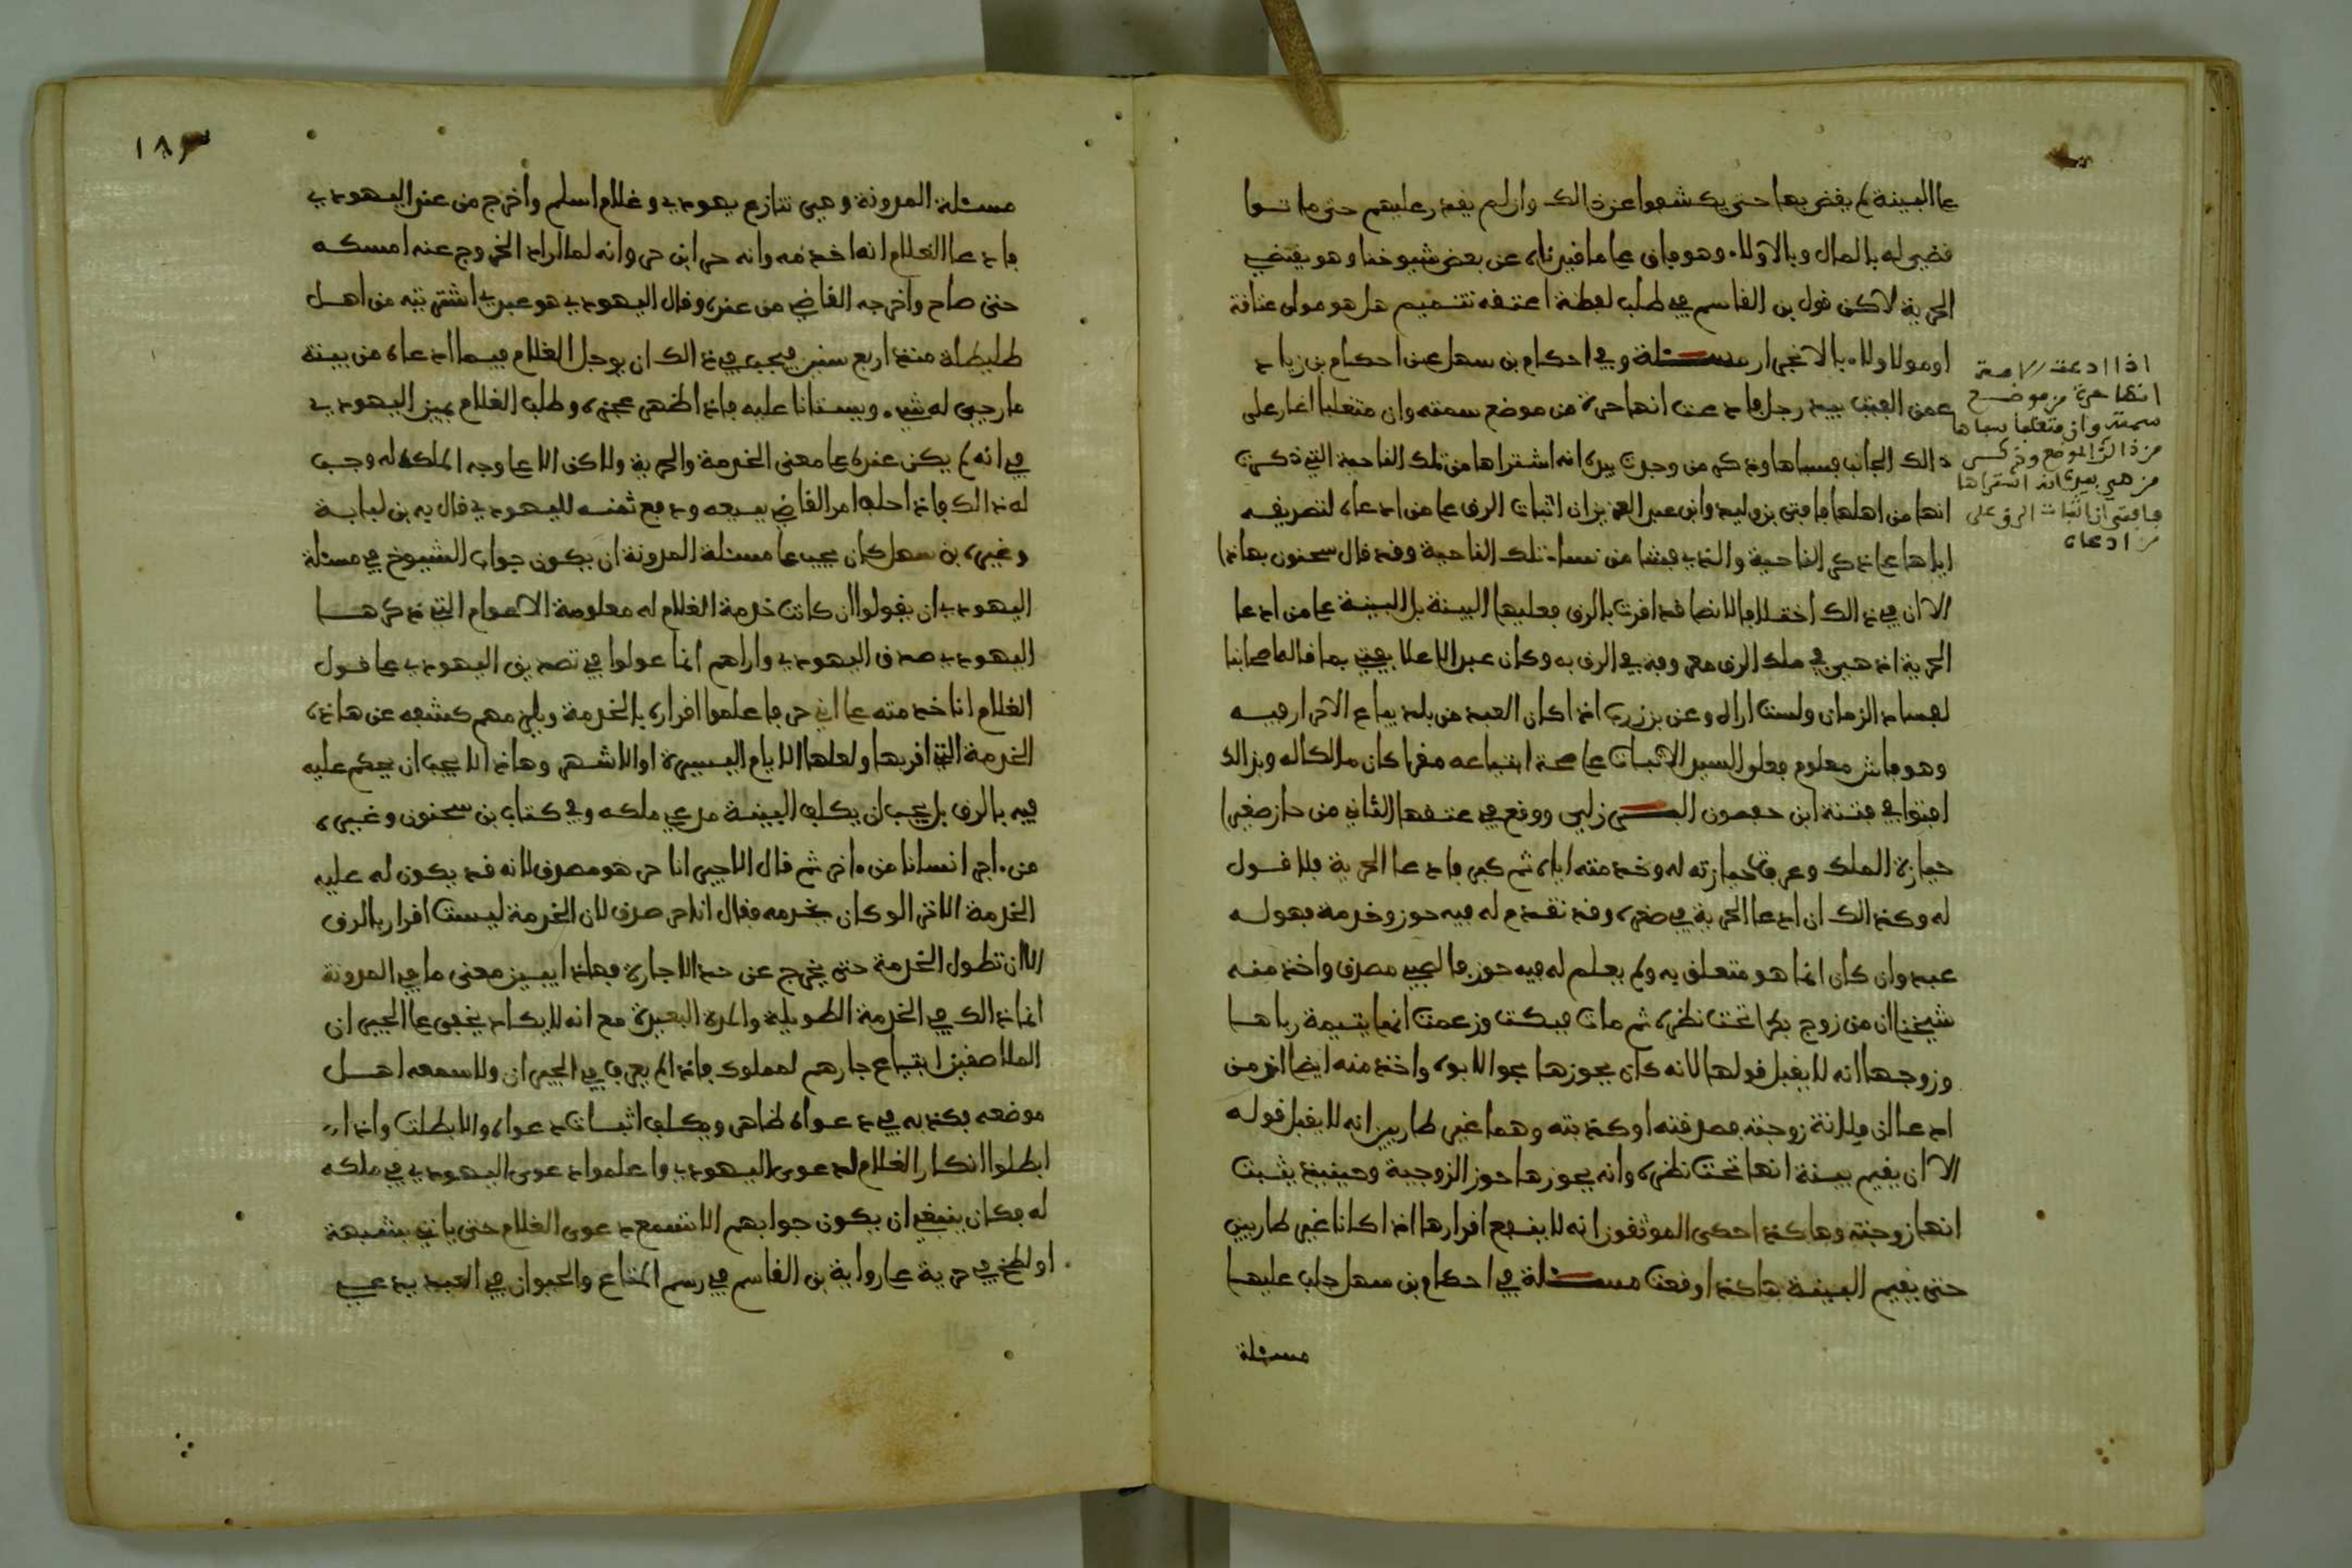 على البينة لم يقض بها حتى يكشفوا عن ذالك وان لم يقدر عليهم حتى ماتوا
قضي له بالمال وبالولاء وهو جار على ما قيدناه عن بعض شيوخنا وهو يقتضي
الحرية لاكن قول بن القاسم في طلب لفظة اعتقه تتميم هل هو مولى عتاقة
او مولا ولاء بالانجرار مسئلة وفي احكام بن سهل عن احكام بن زياد
عمن الفيت بيد رجل فادعت انها حرة من موضع سمته وان متغلبا اغار على
ذالك الجانب فسباها وذكر من وجدت بيده انه اشتراها من تلك الناحية التي ذكرت
انها من اهلها فافتى بن وليد وابن عبد العزيز ان اثبات الرق على من ادعاه لتصريفه
اياها على ذكر الناحية والذي فشا من نساء تلك الناحية وقد قال سحنون بهاذا
الا ان في ذالك اختلافا لانها قد اقرت بالرق فعليها البينة بل البينة على من ادعا
الحرية اذ هي في ملك الرق معروفة في الرق به وكان عبد الاعلا يفتي بما قاله اصحابنا
لفساد الزمان ولست اراه وعن بن زرب اذا كان العبد من بلد يباع الاحرار فيه
وهو فاش معلوم فعلى السيد الاثبات على صحة ابتياعه مقرا كان مالكا له وبذالك
افتوا في فتنة ابن حفصون ووقع في عتقها الثاني من حاز صغيرا
حيازة الملك وعرفت حيازته له وخدمته اياه ثم كبر فادعا الحرية فلا قول
له وكذالك ان ادعا الحرية في صغره وقد تقدم له فيه حوز وخدمة فهو له
عبد وان كان انما هو متعلق به ولم يعلم له فيه حوز فالصبي مصدق واخذ منه
شيخنا ان من زوج بكرا تحت نظره ثم مات فبكت وزعمت انها يتيمة رباها
وزوجها انه لا يقبل قولها لانه كان يحوزها بحوز الابوة واخذ منه ايضا ان من
ادعا ان فلانة زوجته فصدقته او كذبته وهما غير طاريين انه لا يقبل قوله
الا ان يقيم بينة انها تحت نظره وانه يحوزها حوز الزوجية وحينيذ يثبت
انها زوجته وهاكذا حكى الموثقون انه لا ينفع اقرارها اذا كانا غير طاريين
حتى يقيم البينة هاكذا وقعت مسئلة في احكام بن سهل جلب عليها
مسئلة
اذا ادعت الامة
انها حرة من موضع
سمته وان متغلبا سباها
من ذالك الموضع وذكر
من هي بيده انه اشتراها
فافتي ان اثبات الرق على
من ادعاه
١٨٣
مسئلة المدونة وهي تنازع يهودي وغلام اسلم واخرج من عند اليهودي
فادعا الغلام انه اخدمه وانه حر ابن حر وانه لما اراد الخروج عنه امسكه
حتى صاح واخرجه القاضي من عنده وقال اليهودي هو عبدي اشتريته من اهل
طليطلة منذ اربع سنين فيجب في ذالك ان يوجل الغلام فيما ادعاه من بينة
ما رجي له شيء ويستانا عليه فاذا ظهر عجزه وطلب الغلام يمين اليهودي
في انه لم يكن عنده على معنى الخدمة والحرية ولاكن الا على وجه الملك له وجب
له ذالك فاذا حلف امر القاضي ببيعه ودفع ثمنه لليهودي قال به بن لبابة
وغيره بن سهل كان يجب على مسئلة المدونة ان يكون جواب الشيوخ في مسئلة
اليهودي ان يقولوا ان كانت خدمة الغلام له معلومة الاعوام التي ذكرها
اليهودي صدق اليهودي واراهم انما عولوا في تصديق اليهودي على قول
الغلام انا خدمته على اني حر فاعلموا اقراره بالخدمة ويلزمهم كشفه عن هاذه
الخدمة التي اقر بها ولعلها الايام اليسيرة او الاشهر وهاذا لا يجب ان يحكم عليه
فيه بالرق بل يجب ان يكلف البينة مدعي ملكه وفي كتاب بن سحنون وغيره
من ءاجر انسانا من ءاخر ثم قال الاجير انا حر هو مصدق لانه قد يكون له عليه
الخدمة الا ترى لو كان يخدمه فقال انا حر صدق لان الخدمة ليست اقرار بالرق
الا ان تطول الخدمة حتى يخرج عن حد الاجارة فهاذا يبين معنى ما في المدونة
انما ذالك في الخدمة الطويلة والمدة البعيدة مع انه لا يكاد يخفى على الجيران
الملاصقين ابتياع جارهم لمملوك فاذا لم يعرف في الجيران ولا سمعه اهل
موضعه بكذبه في دعواه ظاهر ويكلف اثبات دعواه والا بطلت واذا
ابطلوا انكار الغلام لدعوى اليهودي واعلموا دعوى اليهودي في ملكه
له فكان ينبغي ان يكون جوابهم الا تسمع دعوى الغلام حتى ياتي بشبهة
او لطخ في حرية على رواية بن القاسم في رسم المتاع والحيوان في العبد يدعي